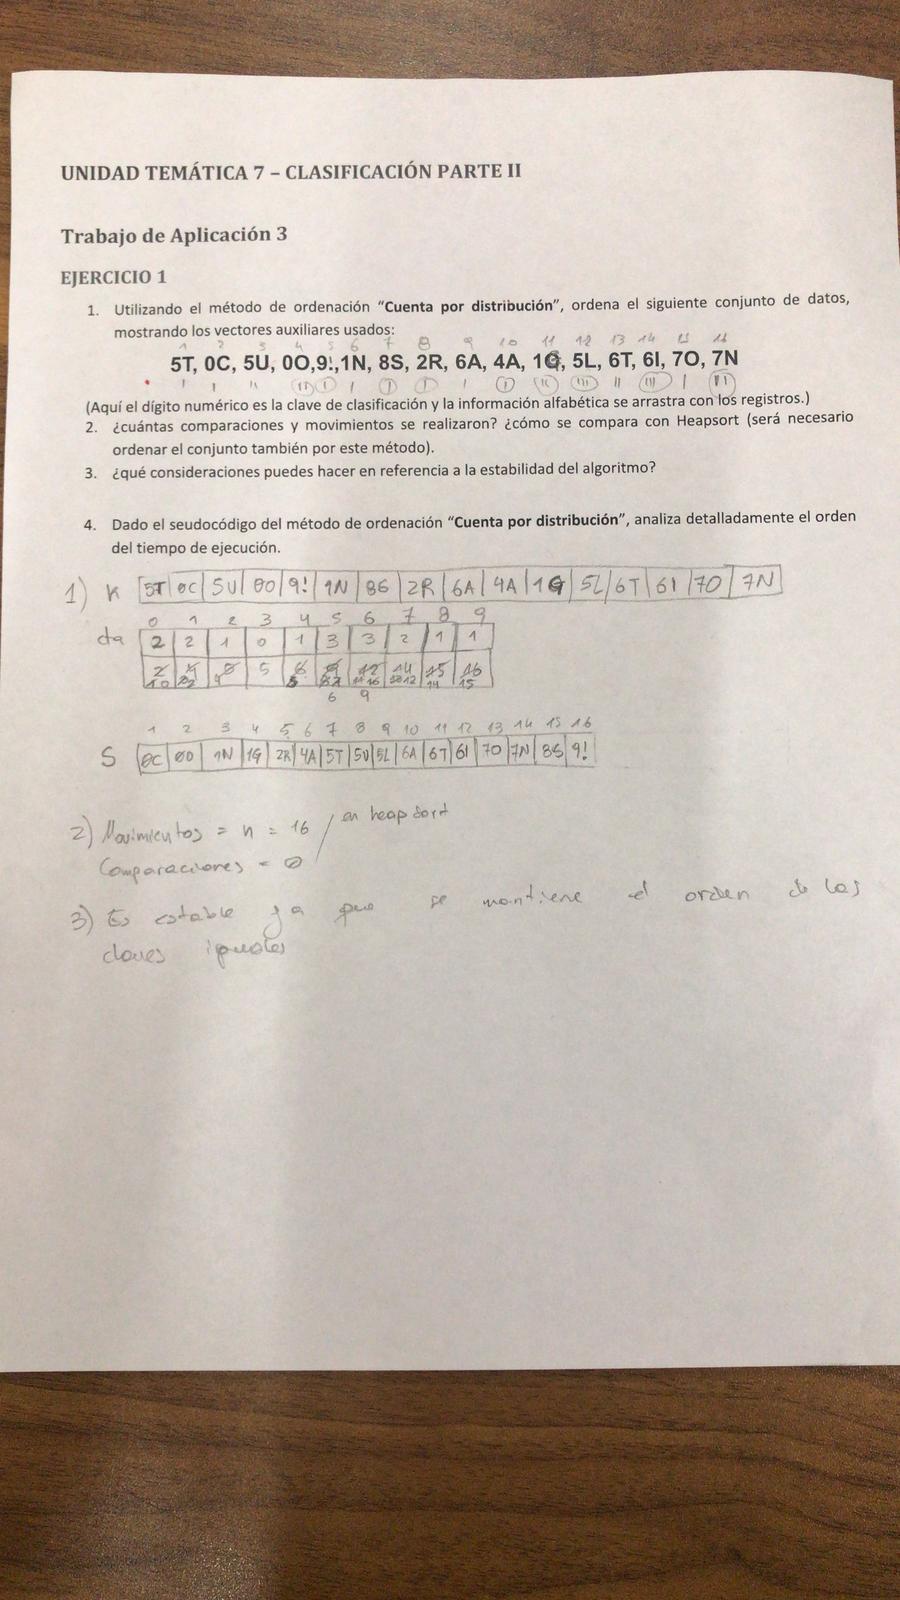 UNIDAD TEMÁTICA 7 – CLASIFICACIÓN PARTE II
Trabajo de Aplicación 3
EJERCICIO 1
1. Utilizando el método de ordenación “Cuenta por distribución”, ordena el siguiente conjunto de datos,
mostrando los vectores auxiliares usados:
1 2 3 4 5 6 7 8 9 10 11 12 13 14 15 16
5T, 0C, 5U, 0O,9!,1N, 8S, 2R, 6A, 4A, 1G, 5L, 6T, 6I, 7O, 7N
(Aquí el dígito numérico es la clave de clasificación y la información alfabética se arrastra con los registros.)
2. ¿cuántas comparaciones y movimientos se realizaron? ¿cómo se compara con Heapsort (será necesario
ordenar el conjunto también por este método).
3. ¿qué consideraciones puedes hacer en referencia a la estabilidad del algoritmo?
4. Dado el seudocódigo del método de ordenación “Cuenta por distribución”, analiza detalladamente el orden
del tiempo de ejecución.
1) K 5T 0C 5U 00 9! 1N 8S 2R 6A 4A 1G 5L 6T 6I 7O 7N
0 1 2 3 4 5 6 7 8 9
cta 2 2 1 0 1 3 3 2 1 1
2 4 5 5 6 9 12 14 15 16
6 9
1 2 3 4 5 6 7 8 9 10 11 12 13 14 15 16
S 0C 00 1N 1G 2R 4A 5T 5U 5L 6A 6T 6I 7O 7N 8S 9!
2) Movimientos = n = 16 / en heapsort
Comparaciones = 0
3) Es estable ya que se mantiene el orden de las
claves iguales